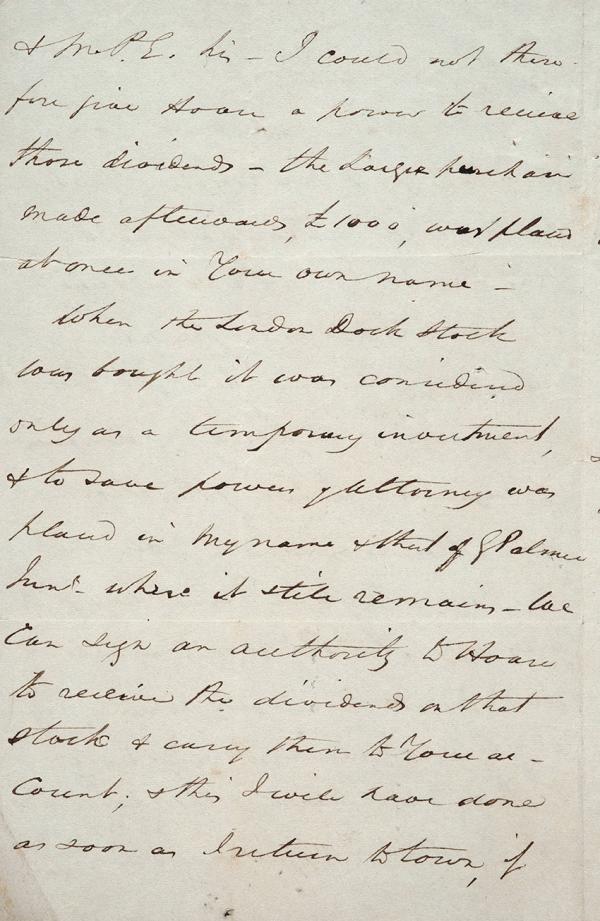 & Mr. P. E. his - I could not there-
fore give Hoare a power to receive
those dividends - the larger purchase
made afterwards, £1000, was placed
at once in Your own name -
When the London Dock Stock
was bought it was considered
only as a temporary investment,
& to save powers of Attorney was
placed in My name & that of G Palmer
Junr. where it still remains - We
Can sign an authority to Hoare
to receive the dividends on that
stock & carry them to Your ac-
Count; & this I will have done
as soon as I return to town, if